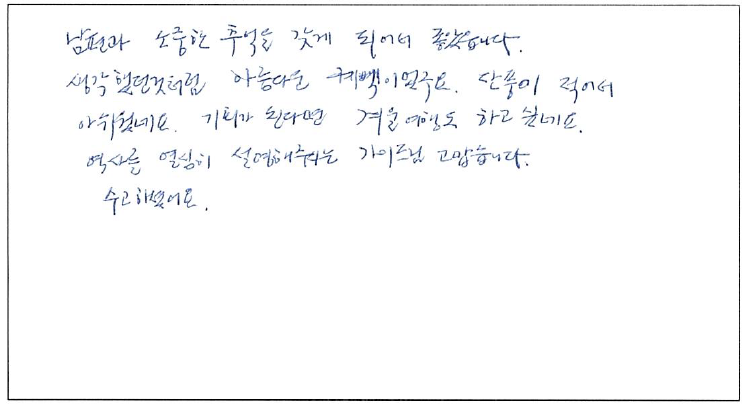 남편과 소중한 추억을 갖게 되어서 좋았습니다.
생각했던것처럼 아름다운 퀘백이였구요. 단풍이 적어서
아쉬웠네요. 기회가 된다면 겨울여행도 하고 싶네요.
역사를 열심히 설명해주시는 가이드님 고맙습니다.
수고하셨어요.